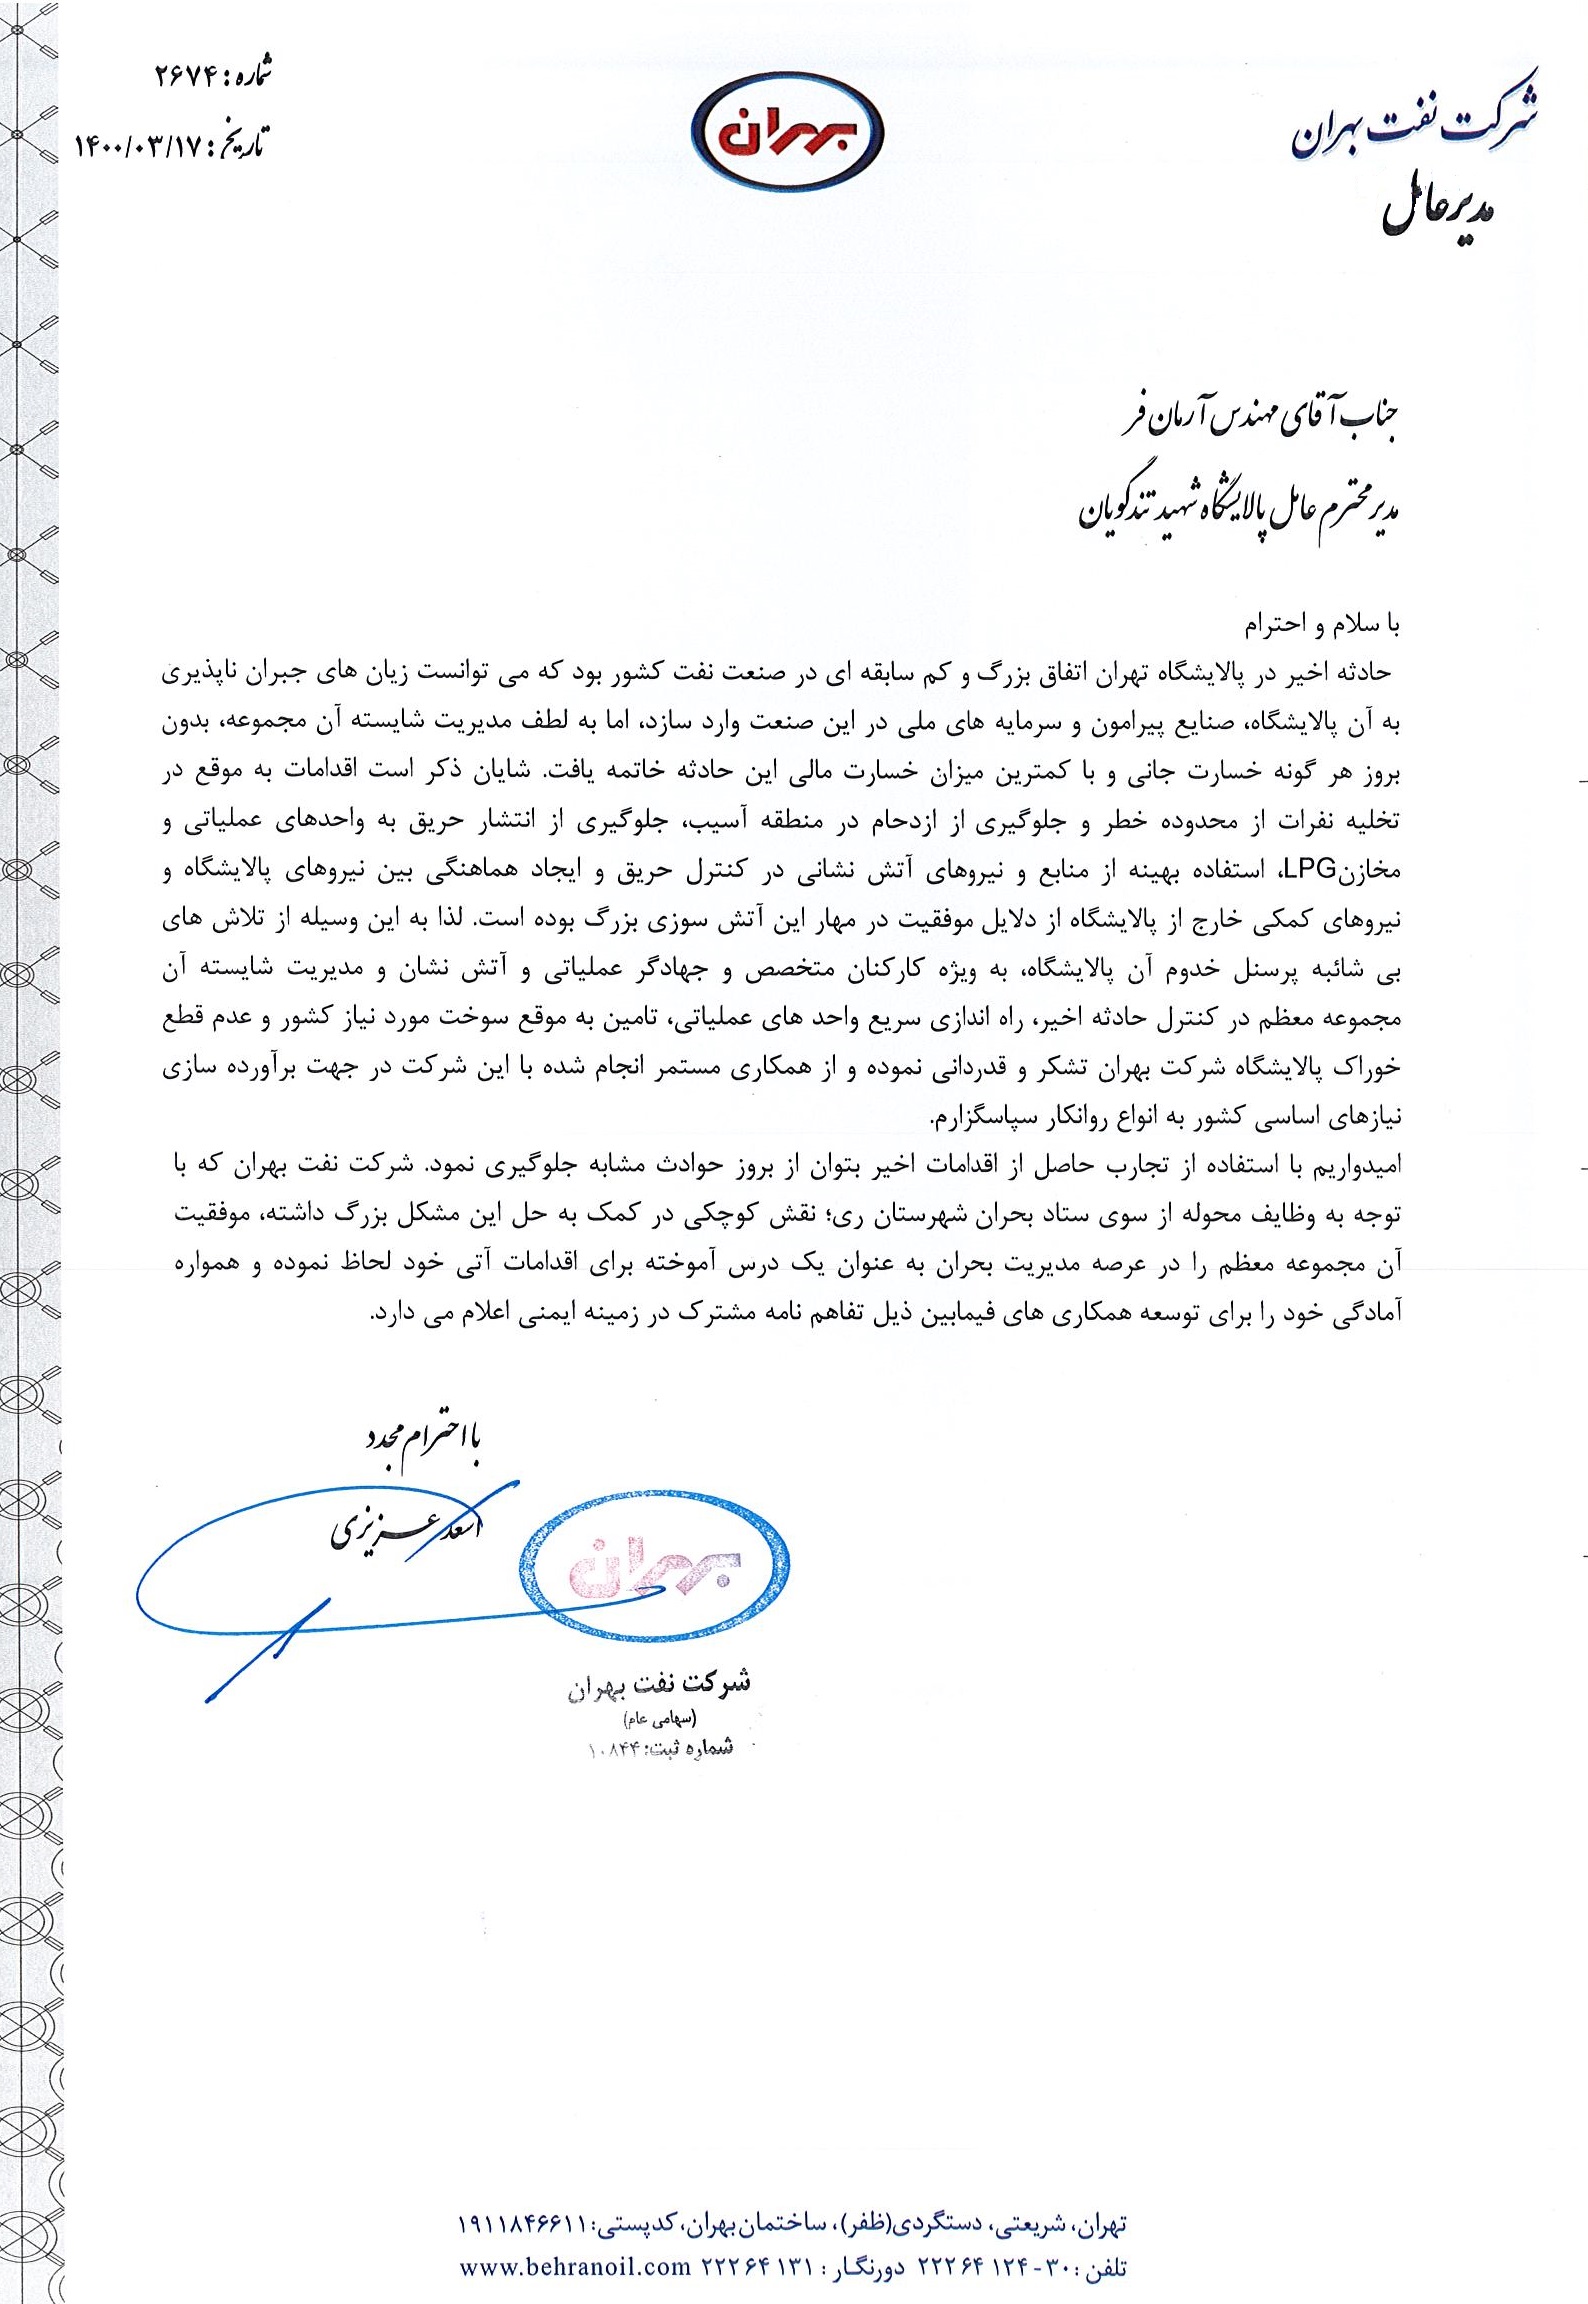 شرکت نفت بهران
مدیرعامل
بهران
شماره : ۲۶۷۴
تاریخ : ۱۴۰۰/۰۳/۱۷
جناب آقای مهندس آرمان فر
مدیر محترم عامل پالایشگاه شهید تندگویان
با سلام و احترام
حادثه اخیر در پالایشگاه تهران اتفاق بزرگ و کم سابقه ای در صنعت نفت کشور بود که می توانست زیان های جبران ناپذیری
به آن پالایشگاه، صنایع پیرامون و سرمایه های ملی در این صنعت وارد سازد، اما به لطف مدیریت شایسته آن مجموعه، بدون
بروز هر گونه خسارت جانی و با کمترین میزان خسارت مالی این حادثه خاتمه یافت. شایان ذکر است اقدامات به موقع در
تخلیه نفرات از محدوده خطر و جلوگیری از ازدحام در منطقه آسیب، جلوگیری از انتشار حریق به واحدهای عملیاتی و
مخازنLPG، استفاده بهینه از منابع و نیروهای آتش نشانی در کنترل حریق و ایجاد هماهنگی بین نیروهای پالایشگاه و
نیروهای کمکی خارج از پالایشگاه از دلایل موفقیت در مهار این آتش سوزی بزرگ بوده است. لذا به این وسیله از تلاش های
بی شائبه پرسنل خدوم آن پالایشگاه، به ویژه کارکنان متخصص و جهادگر عملیاتی و آتش نشان و مدیریت شایسته آن
مجموعه معظم در کنترل حادثه اخیر، راه اندازی سریع واحد های عملیاتی، تامین به موقع سوخت مورد نیاز کشور و عدم قطع
خوراک پالایشگاه شرکت بهران تشکر و قدردانی نموده و از همکاری مستمر انجام شده با این شرکت در جهت برآورده سازی
نیازهای اساسی کشور به انواع روانکار سپاسگزارم.
امیدواریم با استفاده از تجارب حاصل از اقدامات اخیر بتوان از بروز حوادث مشابه جلوگیری نمود. شرکت نفت بهران که با
توجه به وظایف محوله از سوی ستاد بحران شهرستان ری؛ نقش کوچکی در کمک به حل این مشکل بزرگ داشته، موفقیت
آن مجموعه معظم را در عرصه مدیریت بحران به عنوان یک درس آموخته برای اقدامات آتی خود لحاظ نموده و همواره
آمادگی خود را برای توسعه همکاری های فیمابین ذیل تفاهم نامه مشترک در زمینه ایمنی اعلام می دارد.
با احترام مجدد
اسعد عزیزی
بهران
شرکت نفت بهران
(سهامی عام)
شماره ثبت: ۱۰۸۴۴
تهران، شریعتی، دستگردی(ظفر)، ساختمان بهران، کدپستی: ۱۹۱۱۸۴۶۶۱۱
تلفن : ۳۰-۱۲۴ ۶۴ ۲۲۲ دورنگار : ۱۳۱ ۶۴ ۲۲۲ www.behranoil.com